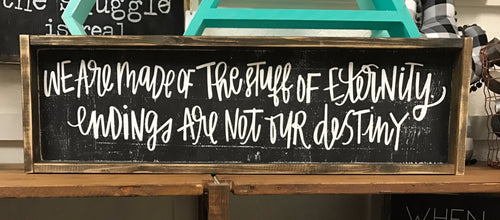 the struggle
is real
WE ARE MADE OF THE STUFF OF ETERNITY
ENDINGS ARE NOT OUR DESTINY
WHEN